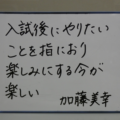 入試後にやりたい
ことを指におり
楽しみにする今が
楽しい
加藤美幸